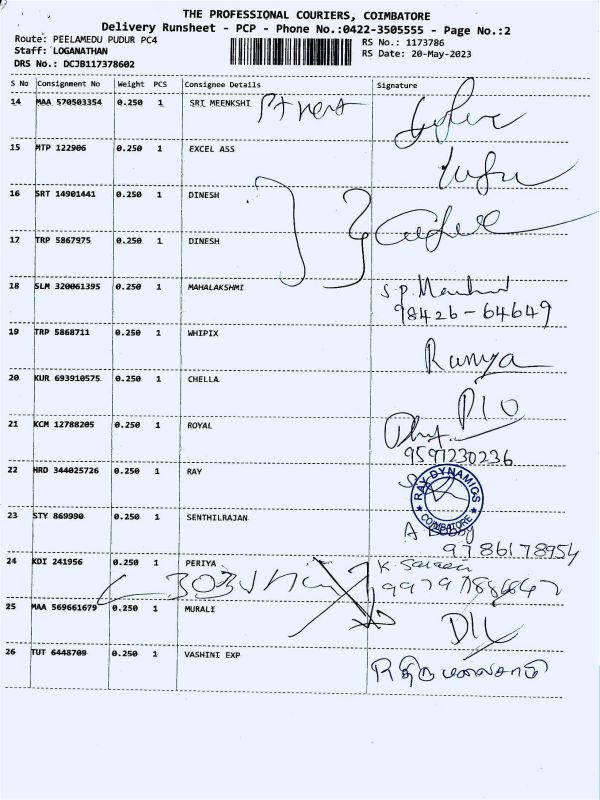 THE PROFESSIONAL COURIERS, COIMBATORE
Delivery Runsheet - PCP - Phone No.:0422-3505555 - Page No.:2
Route: PEELAMEDU PUDUR PC4 RS No.: 1173786
Staff: LOGANATHAN RS Date: 20-May-2023
DRS No.: DCJB117378602
S No Consignment No Weight PCS Consignee Details Signature
14 MAA 570503354 0.250 1 SRI MEENKSHI
15 MTP 122906 0.250 1 EXCEL ASS
16 SRT 14901441 0.250 1 DINESH
17 TRP 5867975 0.250 1 DINESH
18 SLM 320061395 0.250 1 MAHALAKSHMI S.P.
98426-64649
19 TRP 5868711 0.250 1 WHIPIX Ramya
20 KUR 693910575 0.250 1 CHELLA
21 KCM 12788205 0.250 1 ROYAL
9597230236
22 HRD 344025726 0.250 1 RAY RAY DYNAMICS COIMBATORE
23 STY 869990 0.250 1 SENTHILRAJAN
9786178954
24 KDI 241956 0.250 1 PERIYA
25 MAA 569661679 0.250 1 MURALI
26 TUT 6448709 0.250 1 VASHINI EXP